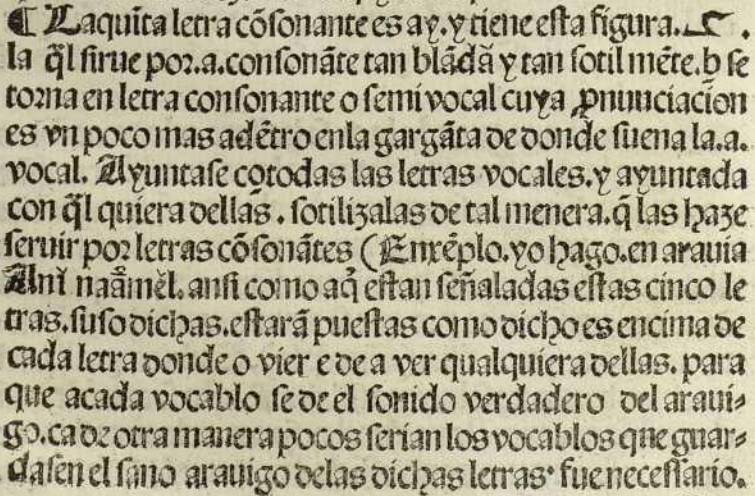 ¶ Laquīta letra cōſonante es ay. y tiene eſta figura. ـﻋ .
la q̄l ſirue por.a.conſonāte tan blādā y tan ſotil mēte.q̄ ſe
torna en letra conſonante o ſemi vocal cuya ꝓnunciacion
es vn poco mas adētro enla gargāta de donde ſuena la.a.
vocal. Ayuntaſe cōtodas las letras vocales.y ayuntada
con q̄l quiera dellas. ſotilizalas de tal menera.q̄ las haze
ſeruir por letras cōſonātes (Enxēplo.yo hago.en arauia
Anī naāmēl. anſi como aq̄ eſtan ſeñaladas eſtas cinco le
tras.ſuſo dichas.eſtarā pueſtas como dicho es encima de
cada letra donde o vier e de a ver qualquiera dellas. para
que acada vocablo ſe de el ſonido verdadero del araui⸗
go.ca de otra manera pocos ſerian los vocablos que guar⸗
daſen el ſano arauigo delas dichas letras· fue neceſſario.